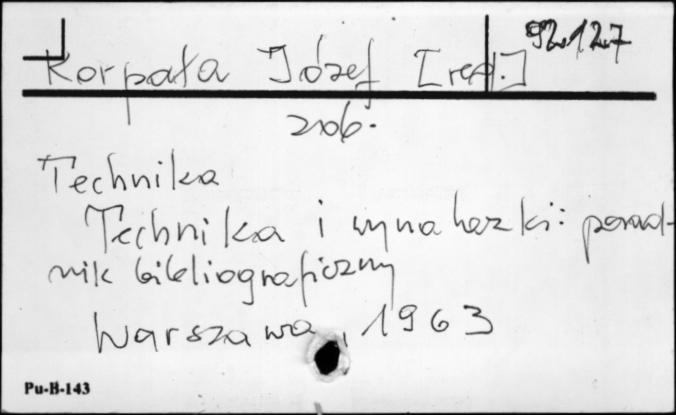 92.127
Korpała Józef [red.]
zob.
Technika
Technika i wynalazki: porad-
nik bibliograficzny
Warszawa, 1963
Pu-B-143